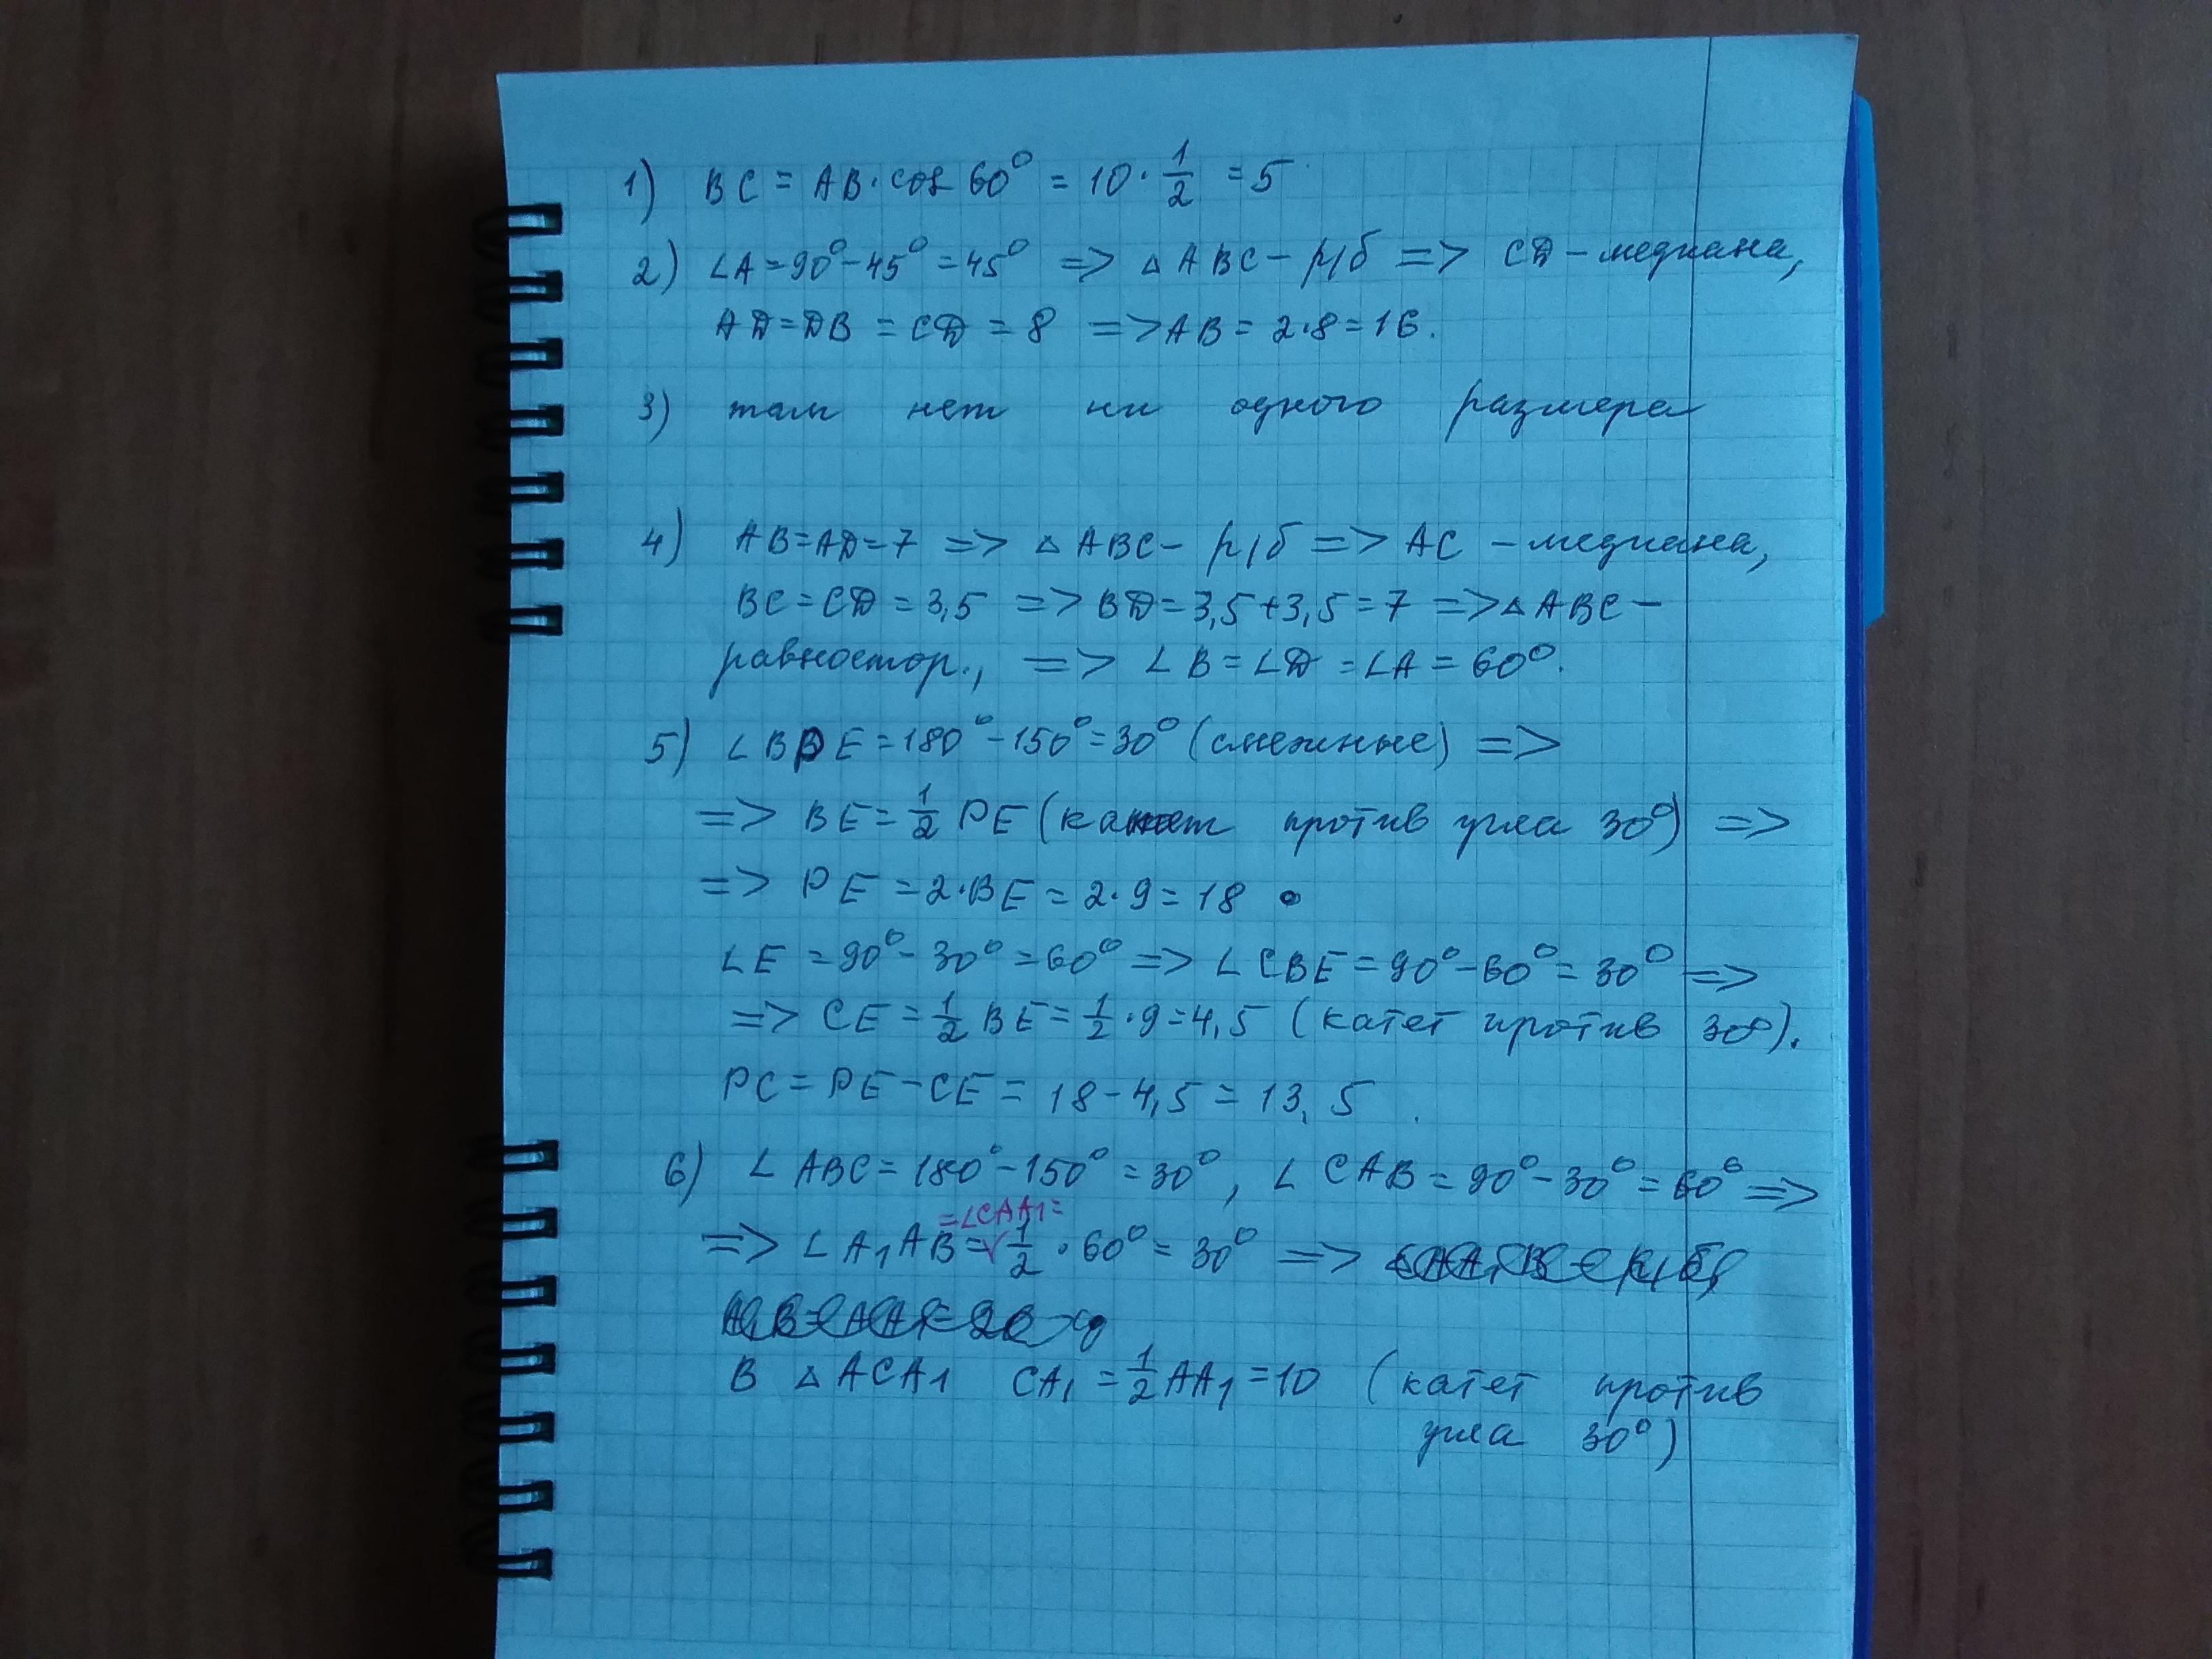 1) BC = AB · cos 60° = 10 · 1/2 = 5
2) ∠A = 90° - 45° = 45° => △ABC - р/б => CD - медиана,
AD = DB = CD = 8 => AB = 2·8 = 16.
3) там нет ни одного размера
4) AB = AD = 7 => △ABC - р/б => AC - медиана,
BC = CD = 3,5 => BD = 3,5 + 3,5 = 7 => △ABC -
равностор., => ∠B = ∠D = ∠A = 60°.
5) ∠BPE = 180° - 150° = 30° (смежные) =>
=> BE = 1/2 PE (катет против угла 30°) =>
=> PE = 2·BE = 2·9 = 18 .
∠E = 90° - 30° = 60° => ∠CBE = 90° - 60° = 30° =>
=> CE = 1/2 BE = 1/2 · 9 = 4,5 (катет против 30°).
PC = PE - CE = 18 - 4,5 = 13,5 .
6) ∠ABC = 180° - 150° = 30°, ∠CAB = 90° - 30° = 60° =>
=∠CAA1=
=> ∠A₁AB = √ 1/2 · 60° = 30° =>
В △ACA1 CA₁ = 1/2 AA₁ = 10 (катет против
угла 30°)